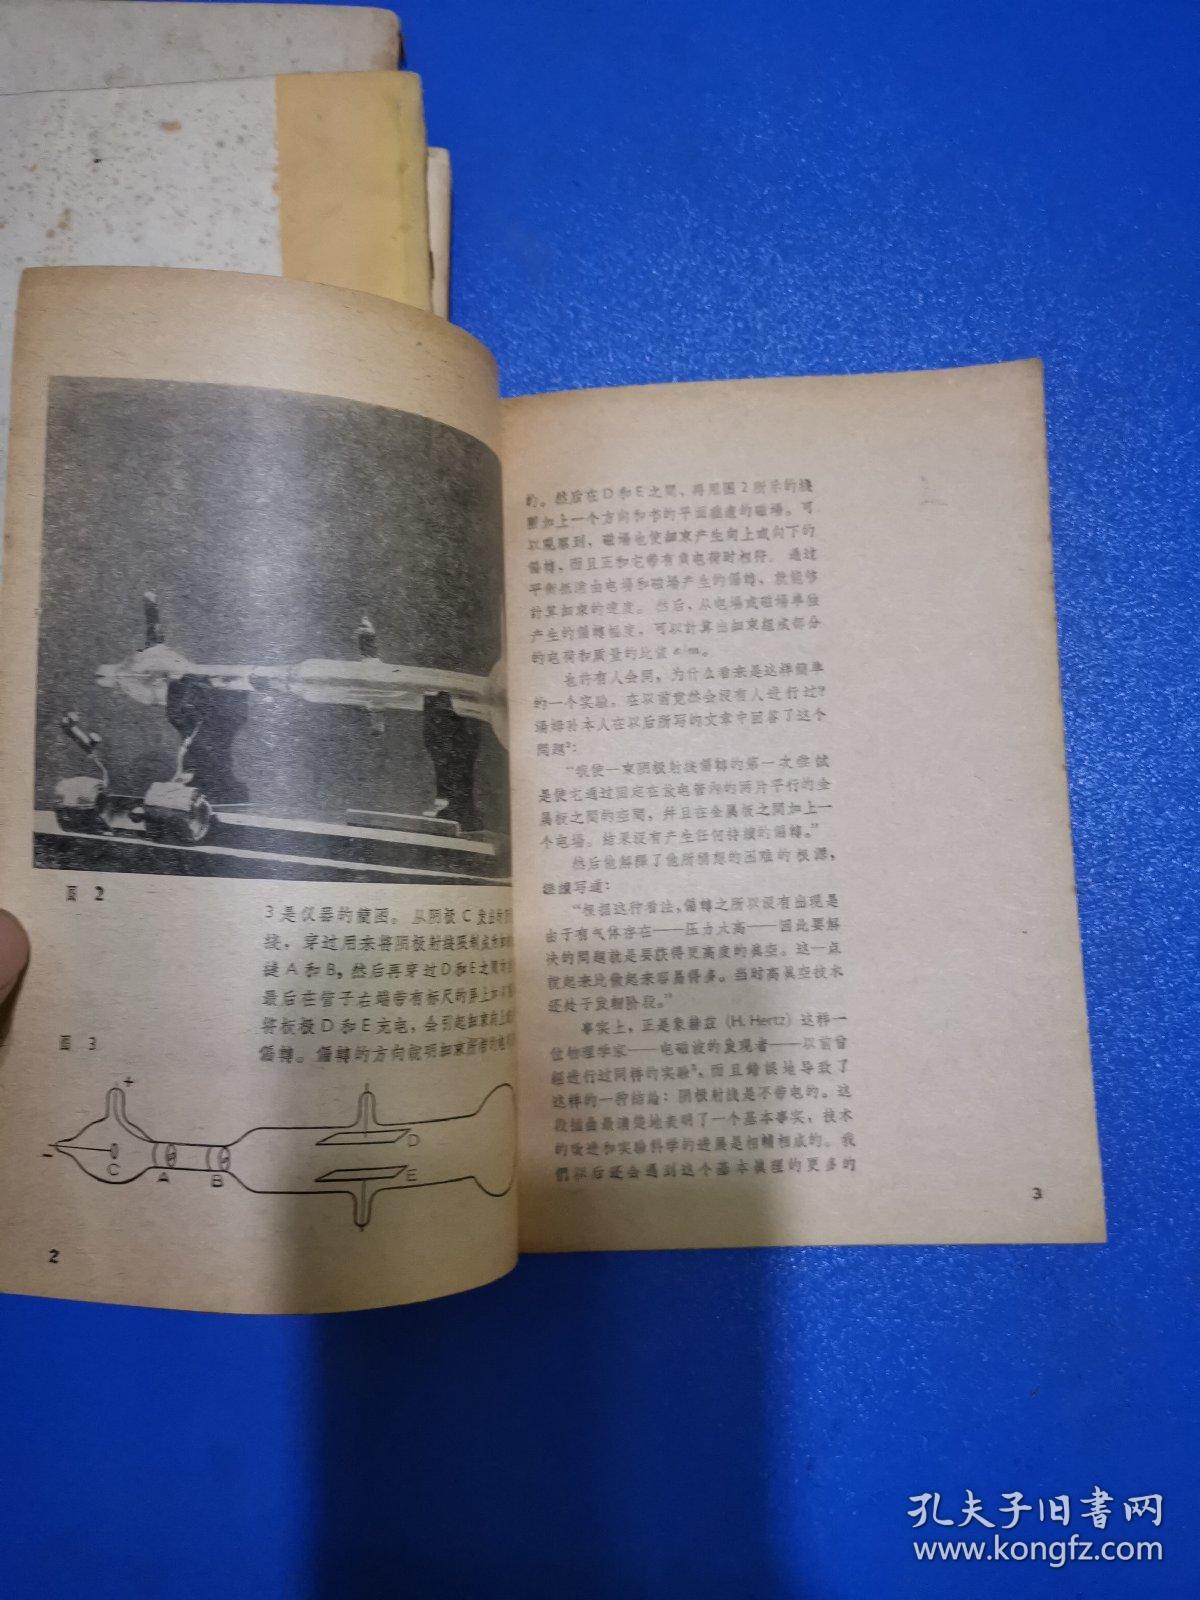 图 2
3 是仪器的简图。从阴极 C 发出的
线，穿过用来将阴极射线限制成为细
缝 A 和 B，然后再穿过 D 和 E 之间
最后在管子右端带有标尺的屏上
将板极 D 和 E 充电，会引起细束向上
偏轉。偏轉的方向說明細束所带的电
图 3
+
-
C
A
B
D
E
2
的。然后在 D 和 E 之間，再用图 2 所示的綫
圈加上一个方向和书的平面垂直的磁場。可
以观察到，磁場也使細束产生向上或向下的
偏轉，而且正和它带有負电荷时相符。通过
平衡抵消由电場和磁場产生的偏轉，就能够
計算細束的速度。然后，从电場或磁場单独
产生的偏轉幅度，可以計算出細束組成部分
的电荷和质量的比值 e/m。
也許有人会問，为什么看来是这样簡单
的一个实驗，在以前竟然会沒有人进行过？
湯姆孙本人在以后所写的文章中回答了这个
問題²：
“我使一束阴极射线偏轉的第一次尝試
是使它通过固定在放电管內的两片平行的金
属板之間的空間，并且在金属板之間加上一
个电場。結果沒有产生任何持續的偏轉。”
然后他解釋了他所猜想的困难的根源，
继續写道：
“根据这种看法，偏轉之所以沒有出現是
由于有气体存在——压力太高——因此要解
决的問題就是要获得更高度的眞空。这一点
說起来比做起来容易得多。当时高眞空技术
还处于发軔阶段。”
事实上，正是象赫兹（H. Hertz）这样一
位物理学家——电磁波的发現者——以前曾
經进行过同样的实驗³，而且錯誤地导致了
这样的一种結論：阴极射线是不带电的。这
段插曲最清楚地表明了一个基本事实，技术
的改进和实驗科学的进展是相輔相成的。我
們以后还会遇到这个基本眞理的更多的
3
孔夫子旧书网
www.kongfz.com